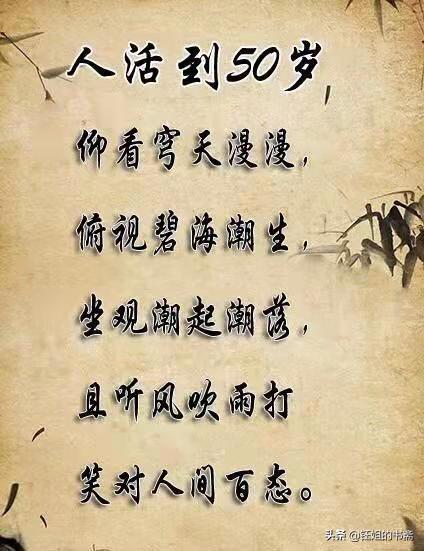 人活到50岁
仰看穹天漫漫，
俯视碧海潮生，
坐观潮起潮落，
且听风吹雨打
笑对人间百态。
头条 @钰姐的书斋